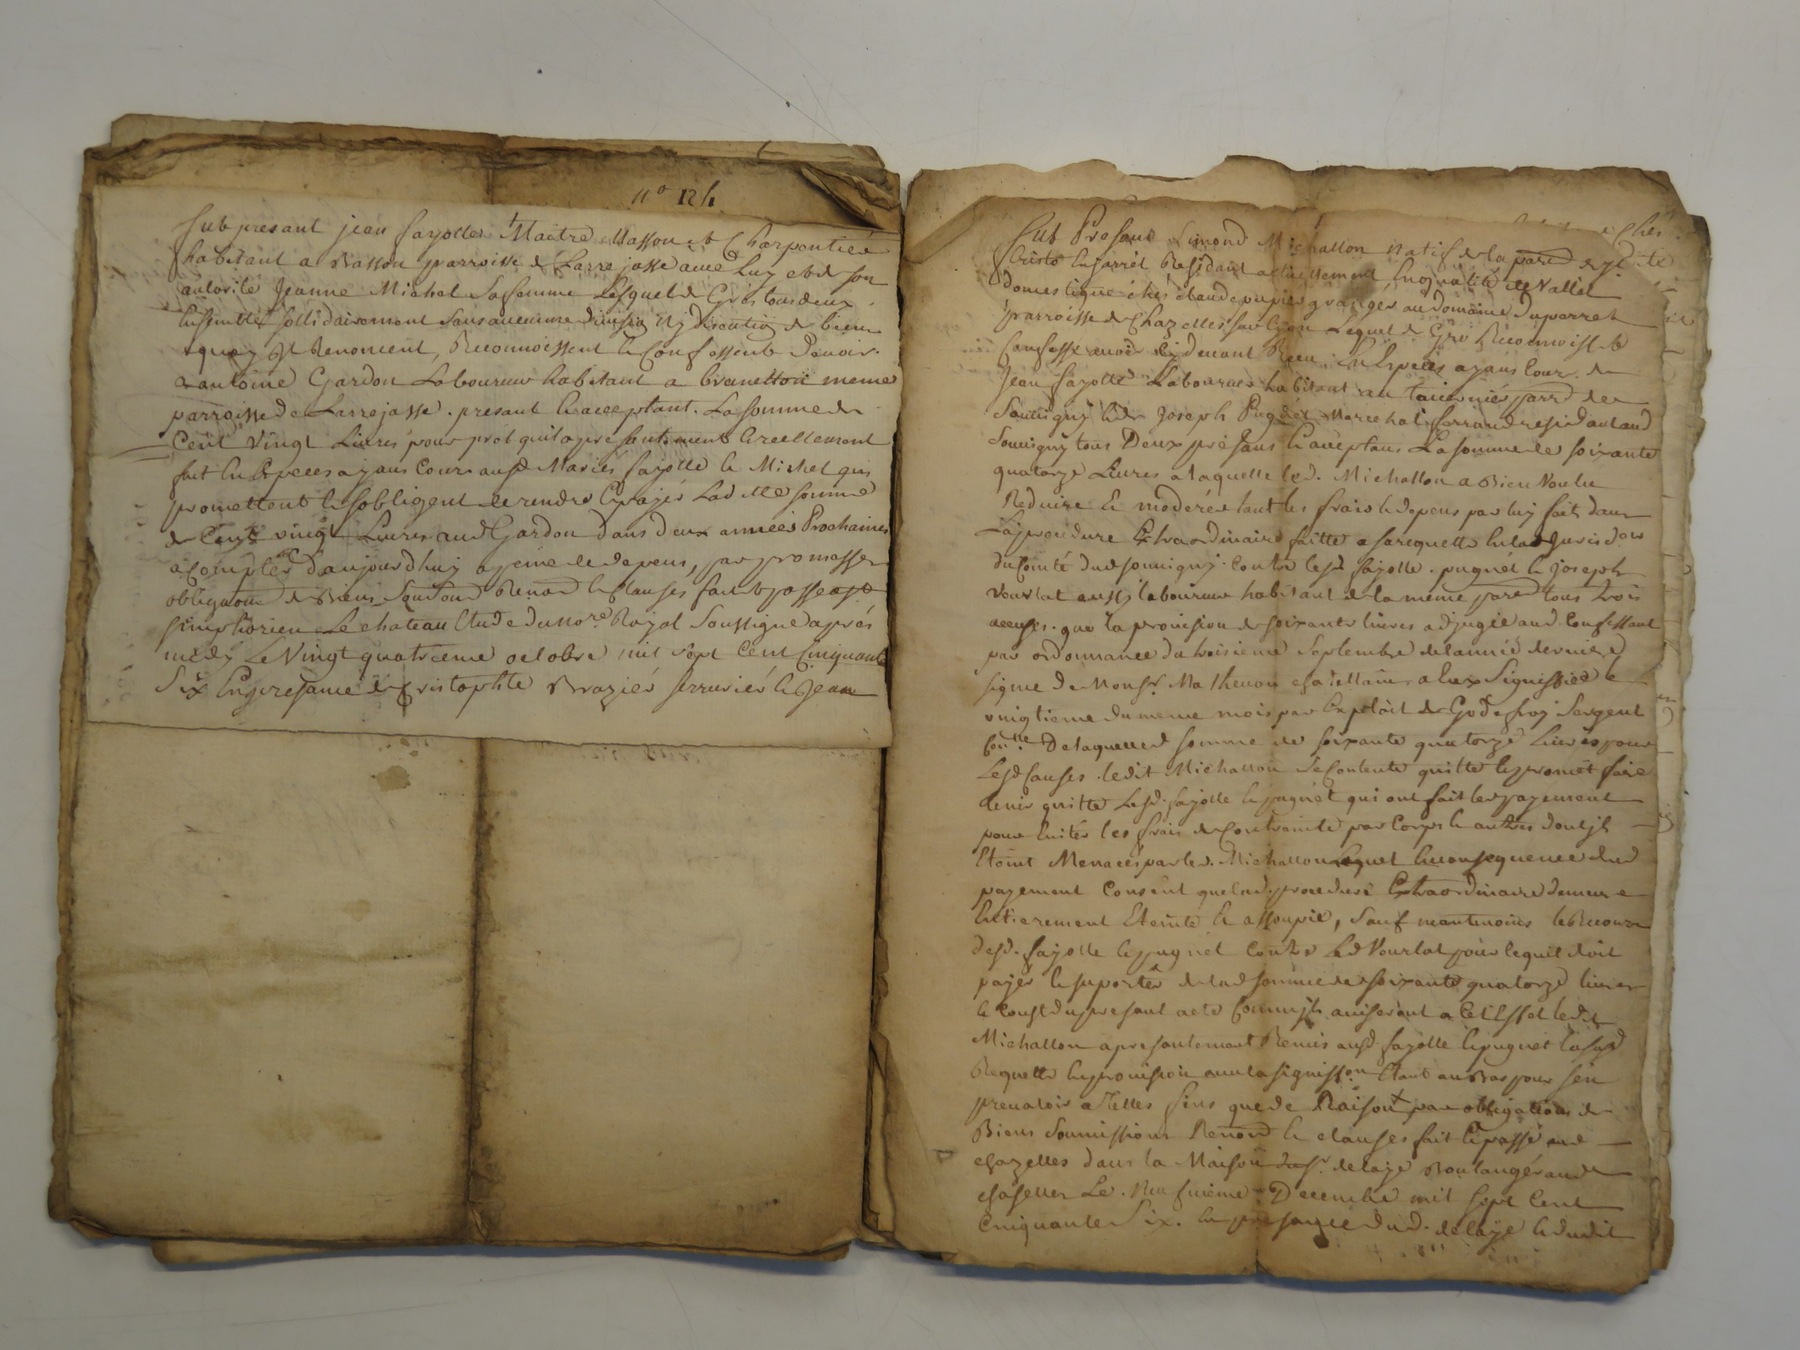 n° 124
fut present jean fayolle Maitre Masson & Charpentier
habitant a Basson parroisse de Larrajasse avec luy et de son
autorité Jeanne Michel sa femme Lesquels de Gré tous deux
Ensemble sollidairement sans aucune division ny discution de biens
a quoy Ils Renoncent, Reconnoissent & Confessent Devoir
a antoine Gardon Laboureur habitant a brunetton meme
parroisse de Larrejasse. present & acceptant. La somme de
Cent vingt Livres pour pret quil a presentement & reellement
fait En Especes ayans Cours ausd. Mariés fayolle & Michel qui
promettent & sobligent de rendre & payer Laditte somme
de Cent vingt Livres aud Gardon dans deux années Prochaines
a Compter d'aujourdhuy a peine de depens, par promesses
obligations de Biens Renon & Clauses fait & passé a St
simphorien Le chateau Etude du no.re Royal Soussigné après
midy Le Vingt quatrieme octobre mil sept Cent Cinquante
Six En presence de Cristophle Brazier serrurier & Jean
fut Present Simond Michallon natif de la par.d de St
domestique chés Claude pupier granger au domaine Duperret
parroisse de Chazelles sur Lyon Lequel de Gré Reconnoist &
Confesse avoir cy devant Recu En Especes ayans Cours de
Jean fayolle Laboureur habitant au parr.d de
Souvigny & de Joseph Pugnet Marechal ferrand residant aud
Souvigny tous Deux presans & acceptans La somme de soixante
quatorze Livres a laquelle led. Michallon a Bien Voulu
Reduire & moderer tant les frais & depens par luy fait dans
La procedure Extraordinaire faitte a sa requette En la Jurisd.on
du Comté dud Souvigny. Contre lesd fayolle. pugnet & Joseph
Vourlat aussy laboureur habitant de la meme parr.d tous trois
accusés. que la provision de soixante livres adjugée aud. Confessant
par ordonnance du troisieme Septembre de lannée derniere
signé de Mons.r Mathevon chatellain a Eux Signiffiée le
vingtieme du meme mois par Exploit de Godefroy Sergent
De laquelle somme de soixante quatorze Livres pour
Lesd Causes. ledit Michallon se Contente quitte & promet faire
tenir quitte Lesd. fayolle & pugnet qui ont fait led payement
pour Eviter les frais de Contrainte par Corps & autres dont Ils
Etoint Menacés par led. Michallon Lequel En consequence dud
payement Consent que lad. procedure Extraordinaire demeure
Entierement Eteinte & assoupie, sauf neantmoins le Recours
desd. fayolle & pugnet Contre Led Vourlat pour lequel doit
payer & suporter de lad somme de soixante quatorze livres
& Coust du present acte Comme Ils aviseront a Cet Effet ledit
Michallon a presentement Remis ausd fayolle & pugnet lasusd
Requette & provision avec la signiff.on Etant au Bas pour sen
prevaloir a Telles fins que de Raison par obligations de
Biens Soumissions Renon & clauses fait & passé aud
chazelles dans la Maison du s.r delaye Boulanger aud
chaselles Le. Neufvieme Decembre mil Sept Cent
Cinquante Six. En presance dud. delaye & dudit